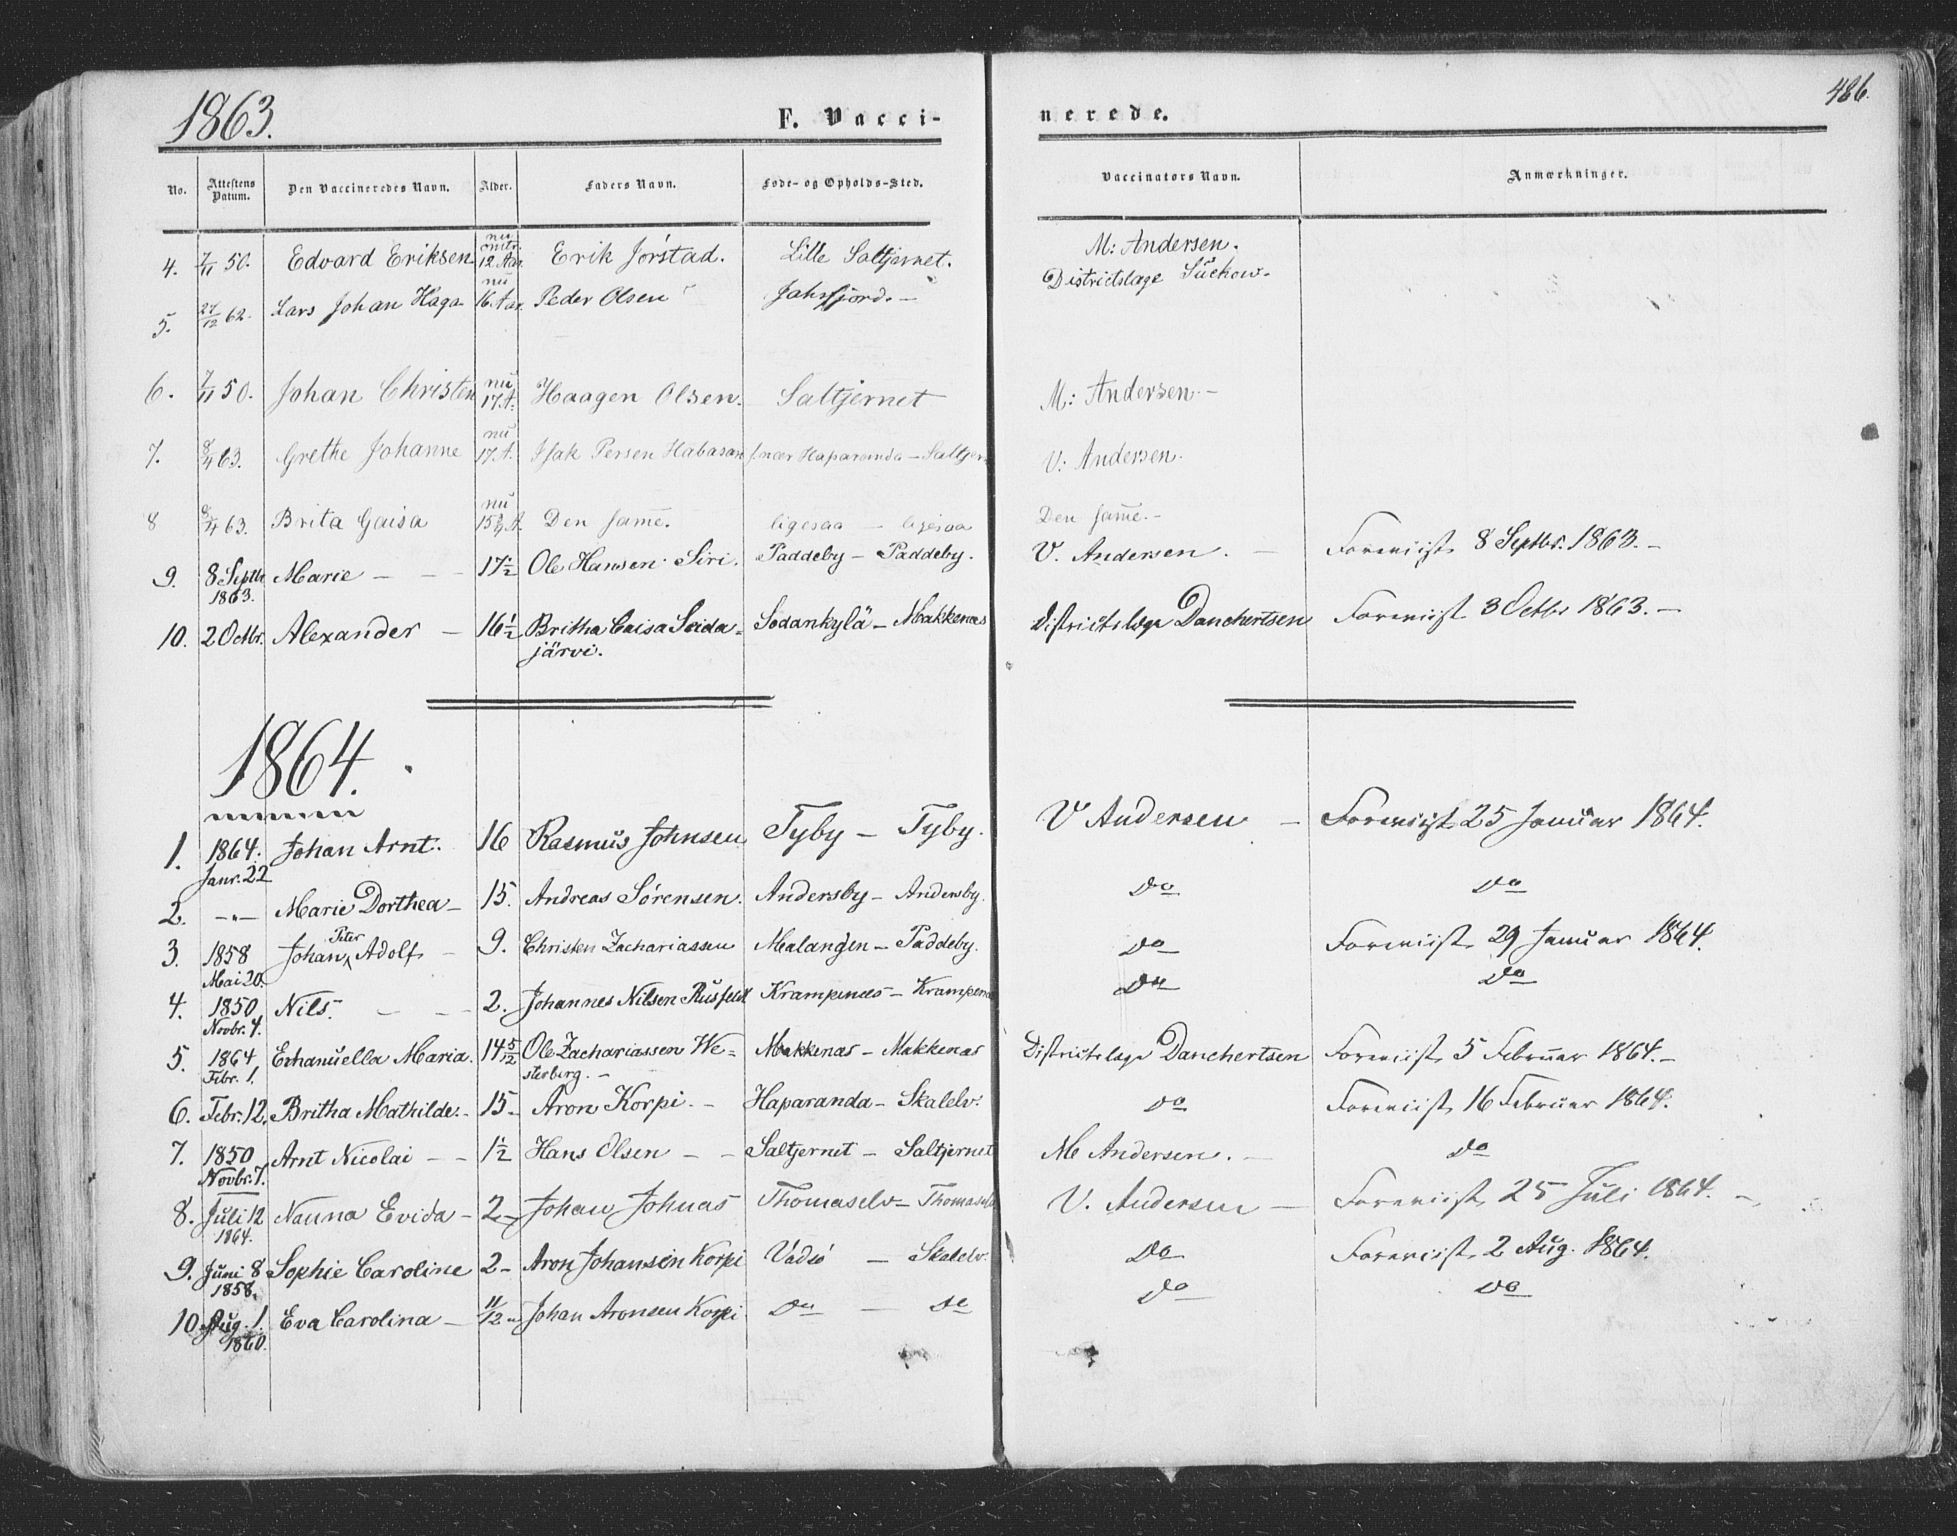 486.
1863. F. Vacci- nerede.
No. Attestens Datum. Den Vaccineredes Navn. Alder. Faders Navn. Føde- og Opholds-Sted. Vaccinators Navn. Anmærkninger.
4. 7/11 50. Edvard Eriksen nu omtr. 12 Aar Erik Jørstad. Lille Saltjernet. M: Andersen.
5. 27/12 62. Lars Johan Haga nu 16 Aar Peder Olsen Jahrfjord. – Districtslæge Suckow.
6. 7/11 50. Johan Christen nu 17 A. Haagen Olsen. Saltjernet M: Andersen. –
7. 8/4 63. Grethe Johanne nu 17 A. Isak Persen Habasan f. nær Haparanda – Saltjern V: Andersen.
8 8/4 63. Brita Gaisa nu 15 3/4 A. Den samme. ligesaa – ligesaa Den samme. –
9. 8 Septbr 1863. Marie – – 17 1/2 Ole Hansen Siri. Paddeby – Paddeby. V. Andersen. – Foreviist 8 Septbr. 1863. –
10. 2 Octbr. Alexander – 16 1/2 Britha Caisa Seida=
järvi. Sodankylä – Makkenæs Districtslæge Danchertsen Foreviist 3 Octbr 1863. –
1864.
1. 1864. Janr. 22 Johan Arnt. 16 Rasmus Johnsen Tyby – Tyby. V Andersen – Foreviist 25 Januar 1864.
2. –"– Marie Dorthea – 15. Andreas Sørensen. Andersby – Andersby. Do Do
3. 1858 Mai 20. Johan Peter Adolf – 9. Christen Zachariassen Malangen – Paddeby. Do Foreviist 29 Januar 1864.
4. 1850 Novbr. 4. Nils. – – 2. Johannes Nilsen Rusfeldt Krampenæs – Krampenæs Do Do
5. 1864 Febr. 1. Emanuella Maria. 14 5/12 Ole Zachariassen We=
sterberg. – Makkenæs – Makkenæs Districtslæge Danchertsen Foreviist 5 Februar 1864. –
6. Febr. 12. Britha Mathilde. – 15 – Aron Korpi. – Haparanda – Skalelv. Do Foreviist 16 Februar 1864.
7. 1850 Novbr. 7. Arnt Nicolai – – 1 1/2 Hans Olsen – – Saltjernet – Saltjernet M Andersen. – Do
8. Juli 12 1864. Nanna Evida – 2 – Johan Johnas Thomaselv – Thomaselv V. Andersen – Foreviist 25 Juli 1864. –
9. Juni 8 1858. Sophie Caroline 2 – Aron Johansen Korpi Vadsø – Skalelv. Do Foreviist 2 Aug. 1864.
10. Aug. 1. 1860. Eva Carolina – 11/12 Johan Aronsen Korpi Do – Do Do Do